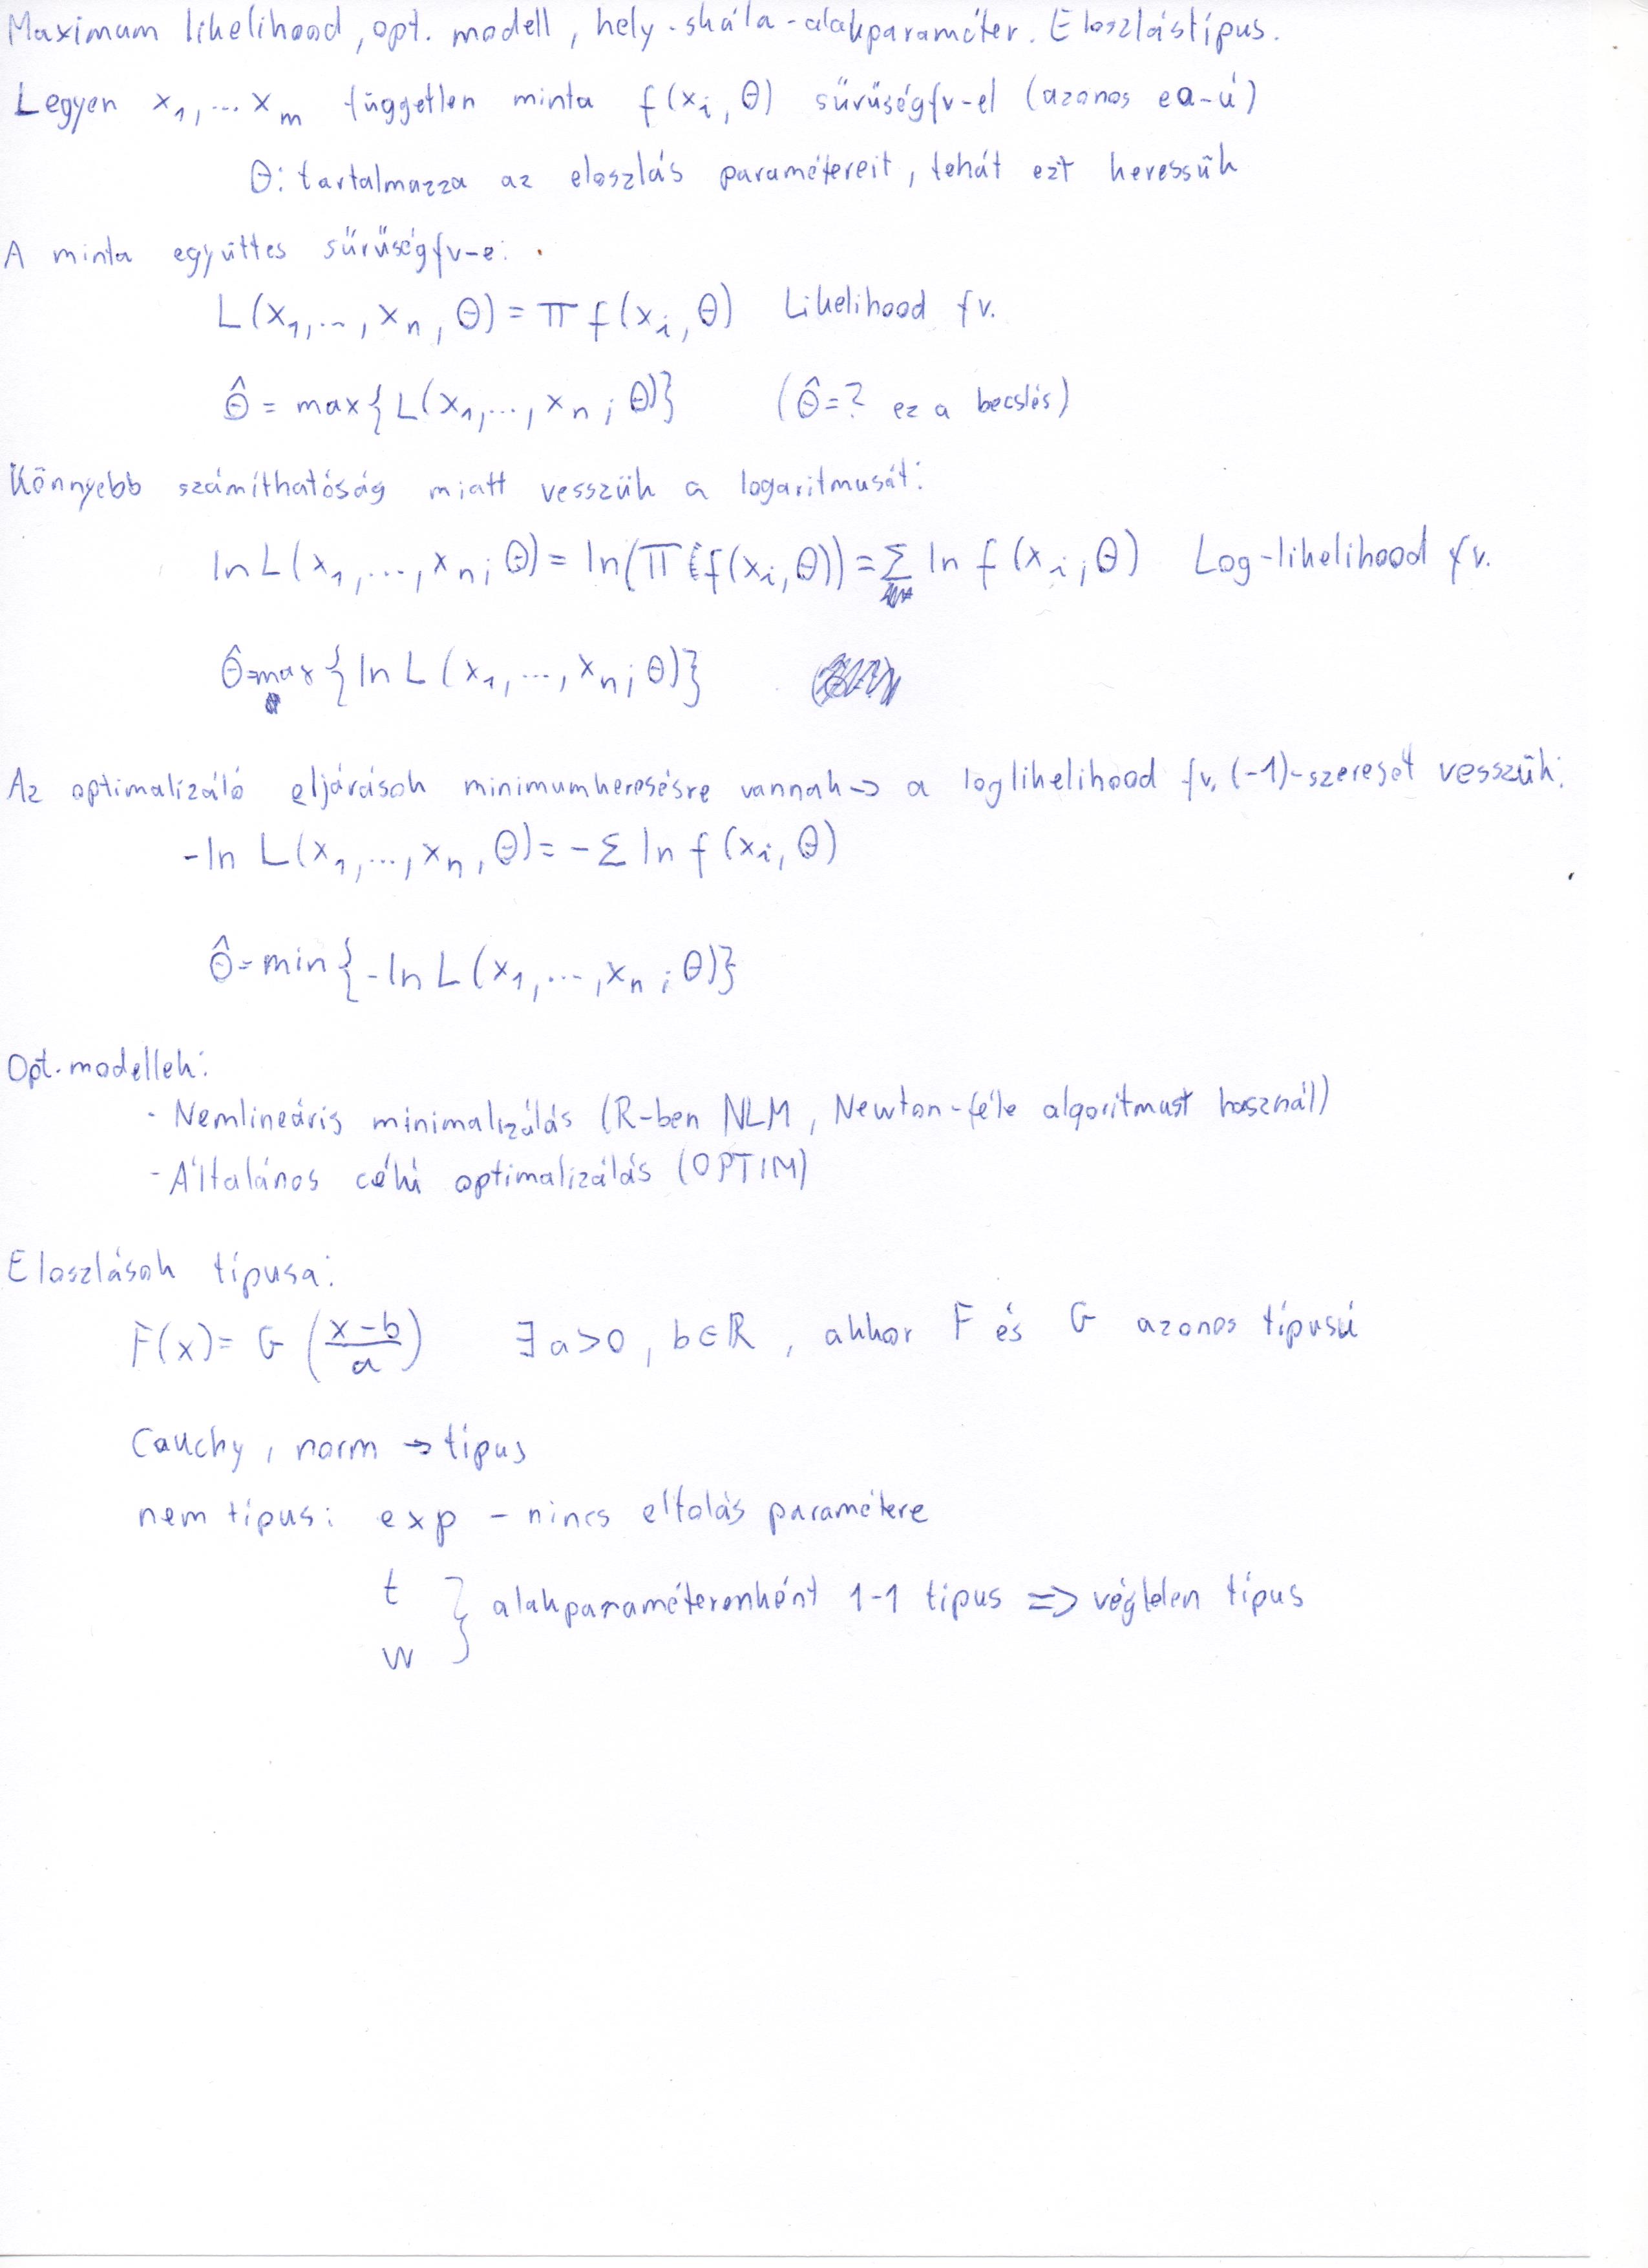 Maximum likelihood, opt. modell, hely-skála-alakparaméter. Eloszlástípus.
Legyen x₁, ... xₘ független minta f(xᵢ, Θ) sűrűségfv-el (azonos ea-ú)
Θ: tartalmazza az eloszlás paramétereit, tehát ezt keressük
A minta együttes sűrűségfv-e:
L(x₁, ..., xₙ, Θ) = π f(xᵢ, Θ) Likelihood fv.
Θ̂ = max{L(x₁, ..., xₙ; Θ)} (Θ̂=? ez a becslés)
Könnyebb számíthatóság miatt vesszük a logaritmusát:
ln L(x₁, ..., xₙ; Θ) = ln(π(f(xᵢ, Θ)) = Σ ln f(xᵢ; Θ) Log-likelihood fv.
Θ̂=max{ln L(x₁, ..., xₙ; Θ)}
Az optimalizáló eljárások minimumkeresésre vannak → a loglikelihood fv. (-1)-szeresét vesszük:
-ln L(x₁, ..., xₙ, Θ) = -Σ ln f(xᵢ, Θ)
Θ̂ = min{-ln L(x₁, ..., xₙ; Θ)}
Opt. modellek:
- Nemlineáris minimalizálás (R-ben NLM, Newton-féle algoritmust használ)
- Általános célú optimalizálás (OPTIM)
Eloszlások típusa:
F(x) = G((x-b)/a) ∃ a>0, b∈ℝ, akkor F és G azonos típusú
Cauchy, norm → típus
nem típus: exp - nincs eltolás paramétere
t
} alakparaméterenként 1-1 típus ⇒ végtelen típus
W